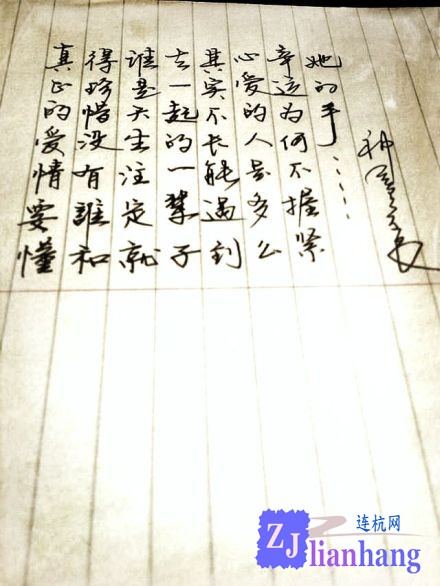 真正的爱情要懂
得珍惜没有誰和
谁是天生注定就
在一起的一辈子
其实不长能遇到
心爱的人是多么
幸运为何不握紧
她的手……
ZJ 连杭网
lianhang